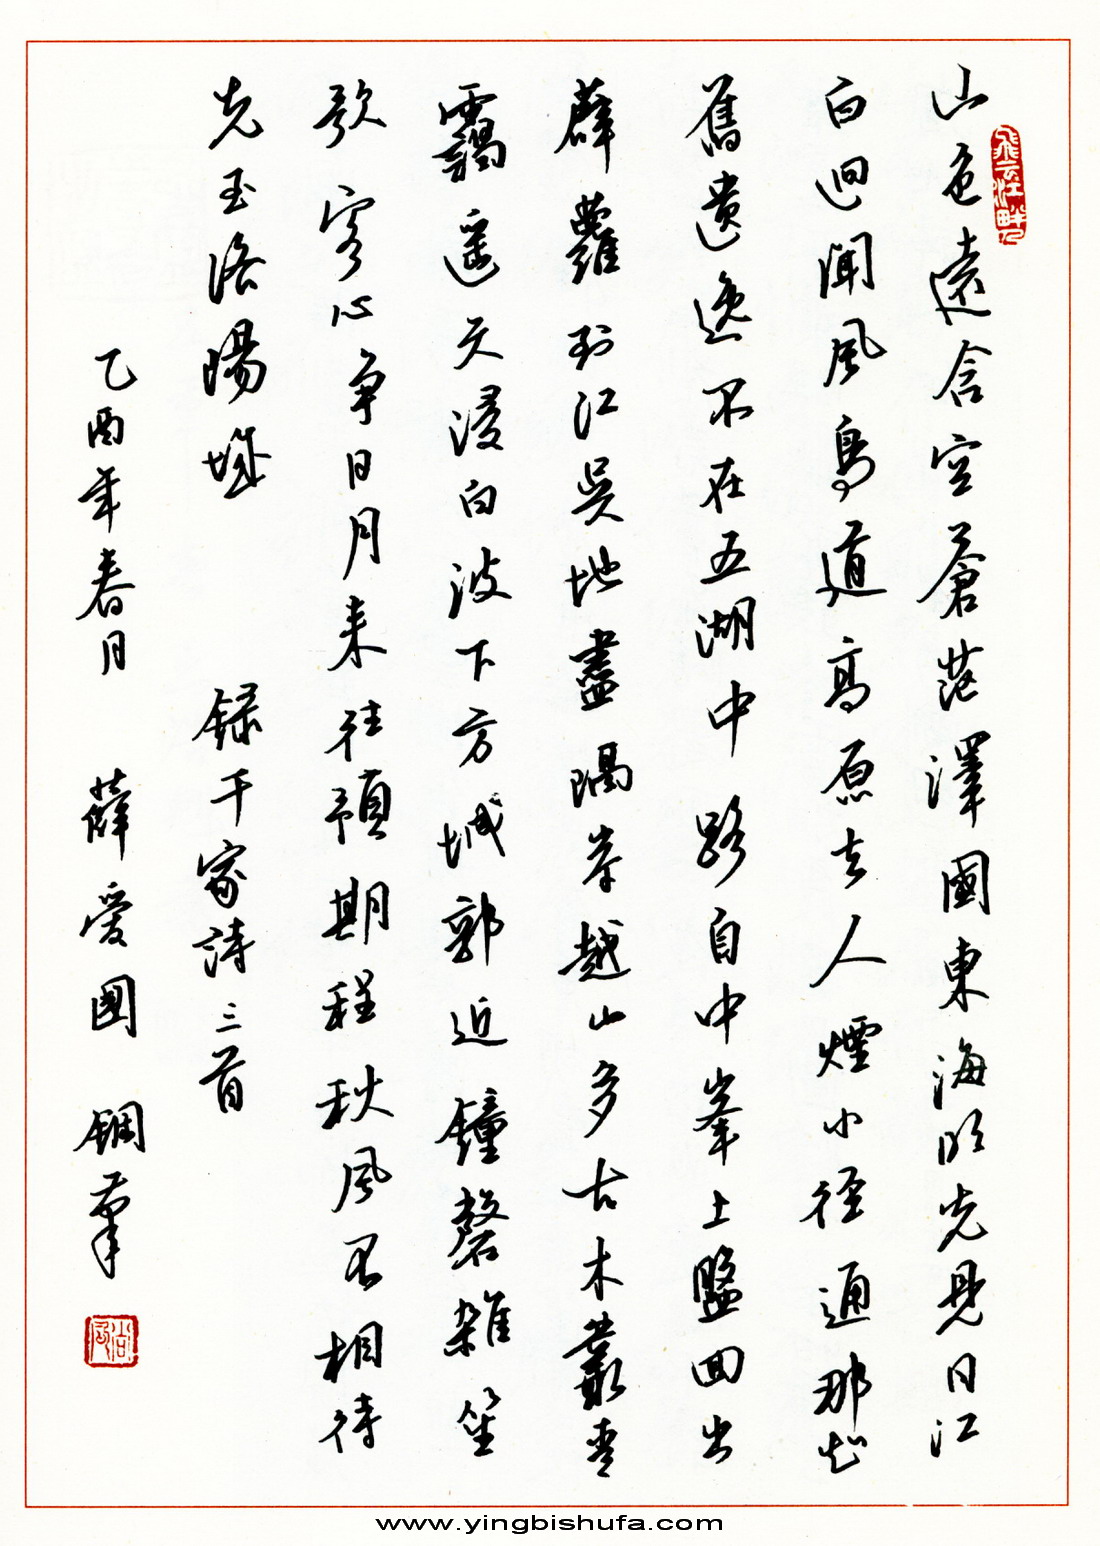 飛雲江畔
山色遠含空蒼茫澤國東海明先見日江
白迥聞風鳥道高原去人煙小徑通那知
舊遺逸不在五湖中路自中峯上盤回出
薜蘿到江吳地盡隔岸越山多古木叢青
靄遥天浸白波下方城郭近鐘磬雜笙
歌客心争日月来往預期程秋風不相待
先至洛陽城 録千家詩三首
乙酉年春月 薛爱國 鋼筆
www.yingbishufa.com